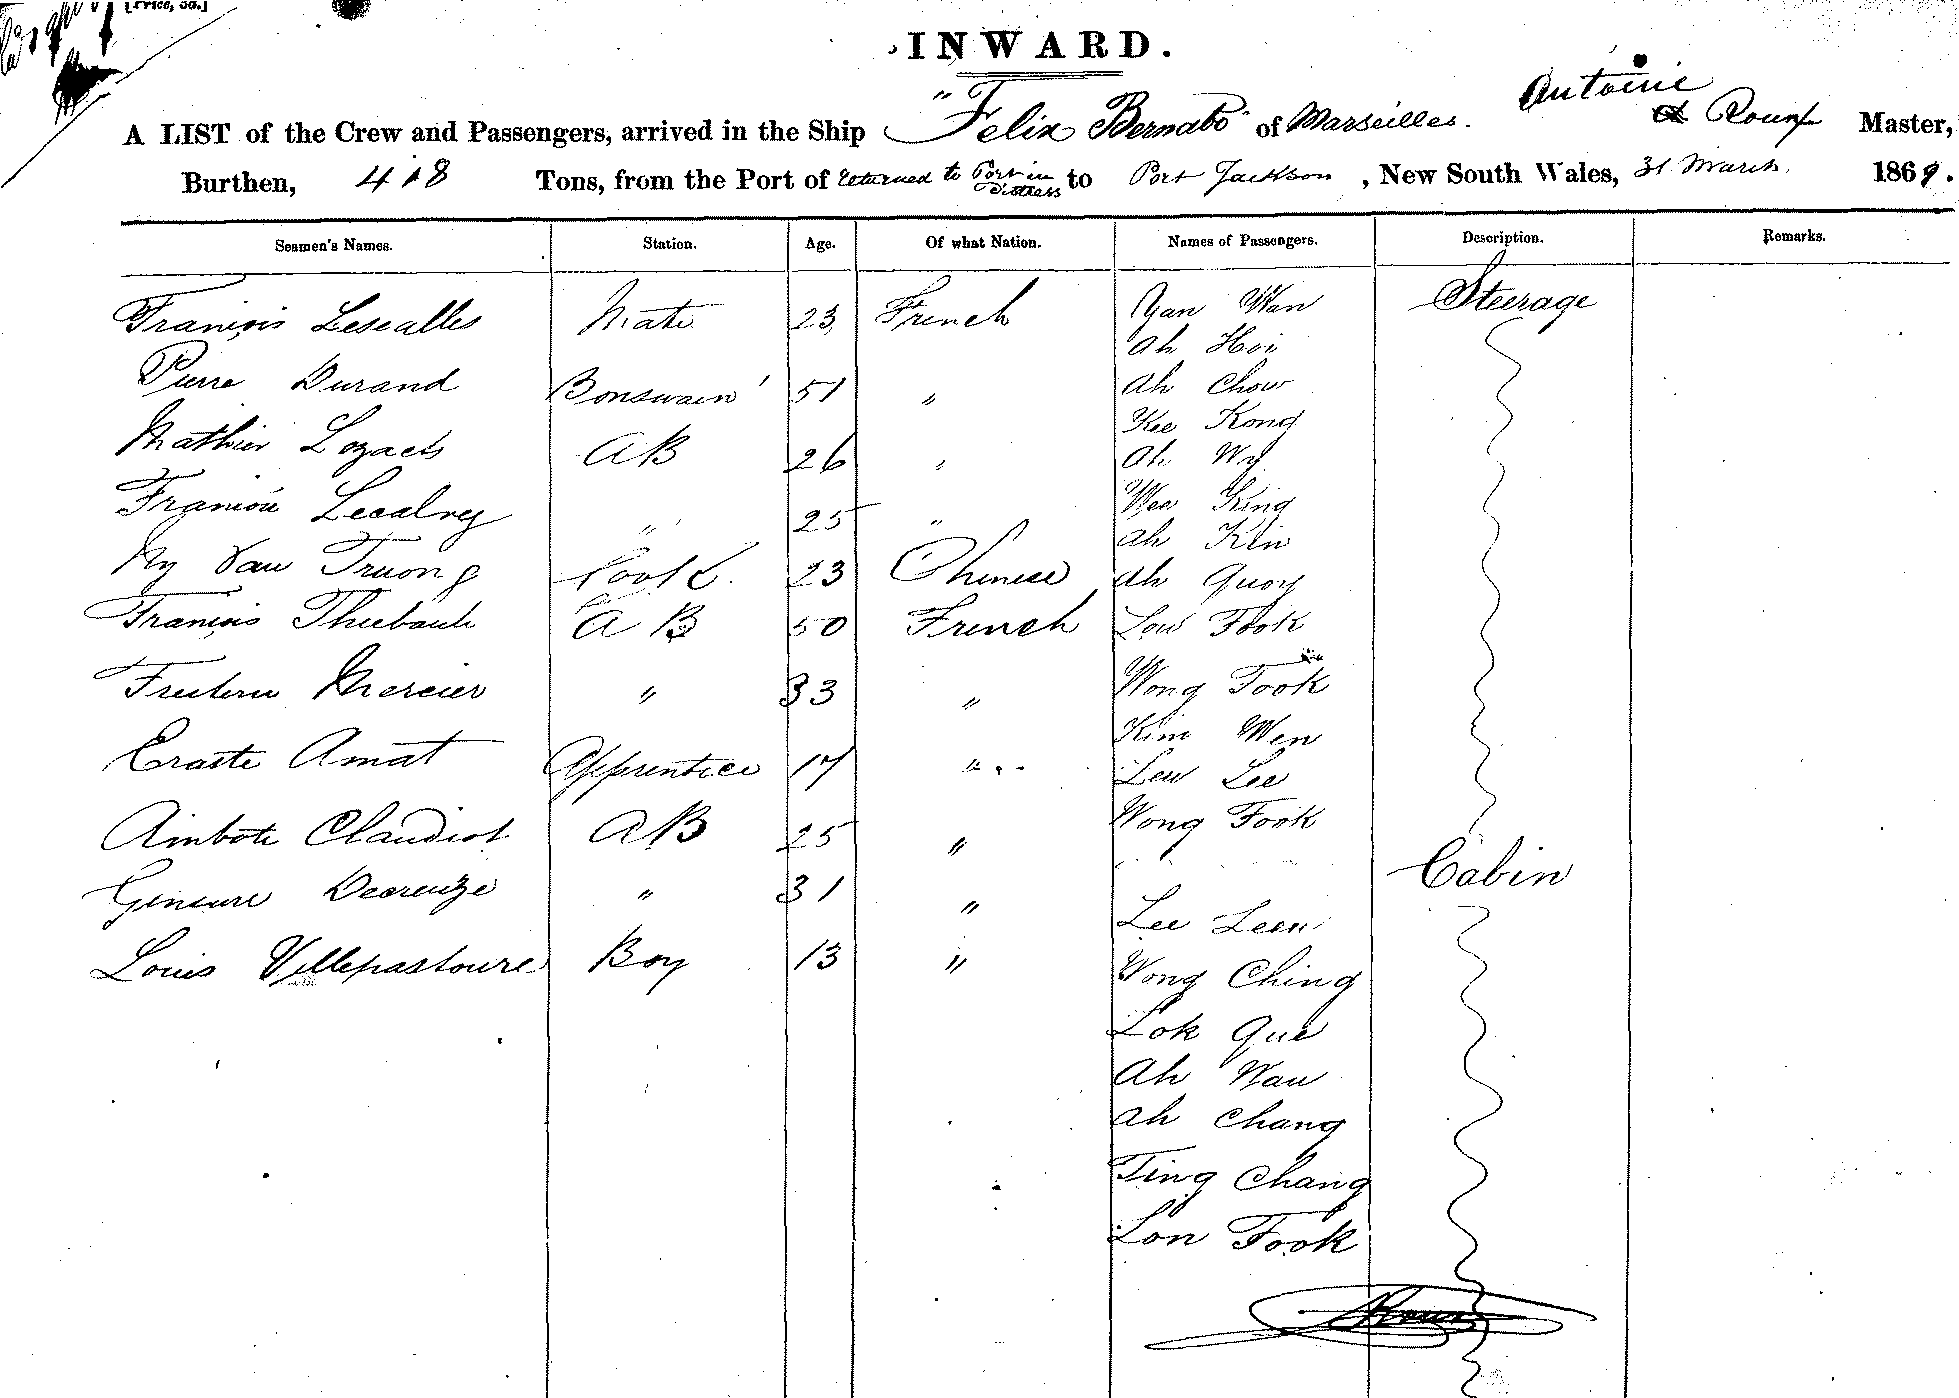 [Price, 3d.]
INWARD.
A LIST of the Crew and Passengers, arrived in the Ship "Felix Bernabo" of Marseilles. Antoine Roux Master,
Burthen, 418 Tons, from the Port of returned to Port in Distress to Port Jackson, New South Wales, 31 March 1869.
Seamen's Names. Station. Age. Of what Nation. Names of Passengers. Description. Remarks.
François Lescalles Mate 23 French Yan Wan Steerage
Ah Hoi
Pierre Durand Bonswain 51 " Ah Chow
Kee Kong
Mathieu Lozach AB 26 " Ah Wy
Lecalvey " 25 " Wee King
Ah Kin
Ny Van Truong Cook. 23 Chinese Ah Quoy
François Thiebault AB 50 French Low Fook
Mercier " 33 " Wong Fook
Kim Wen
Eraste Amat Apprentice 17 " Lew Lee
Claudiot AB 25 " Wong Fook
Cabin
Decreuze " 31 " Lee Leen
Louis Villepastoure Boy 13 " Wong Ching
Lok Que
Ah Wau
Ah Chang
Ting Chang
Lon Fook
Roux